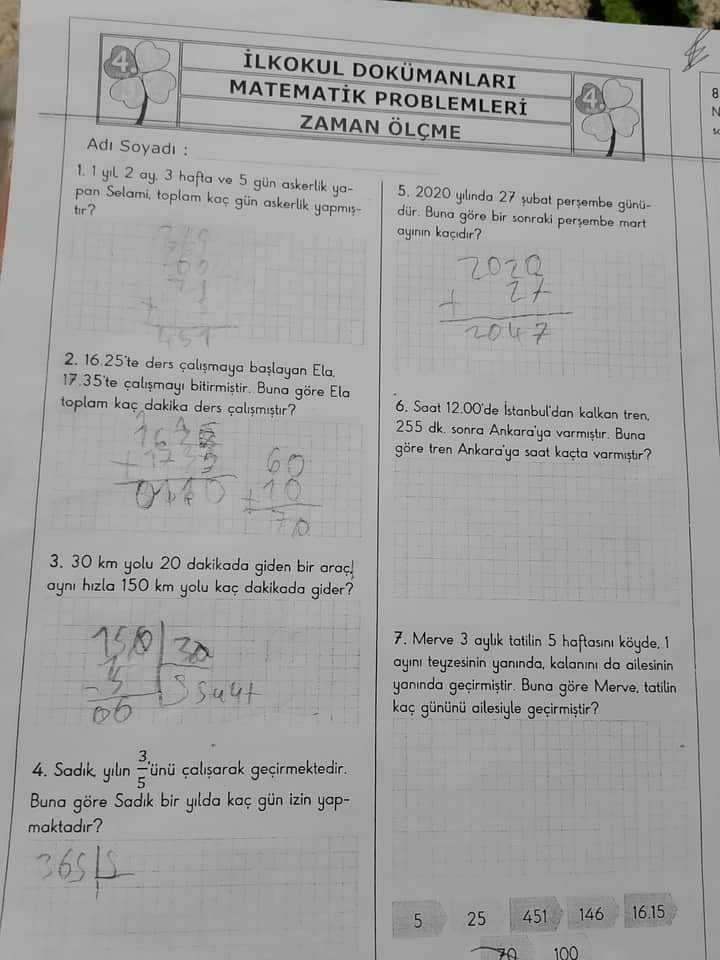 4.
İLKOKUL DOKÜMANLARI
MATEMATİK PROBLEMLERİ
ZAMAN ÖLÇME
4.
Adı Soyadı :
1. 1 yıl, 2 ay, 3 hafta ve 5 gün askerlik ya-
pan Selami, toplam kaç gün askerlik yapmış-
tır?
451
2. 16.25'te ders çalışmaya başlayan Ela,
17.35'te çalışmayı bitirmiştir. Buna göre Ela
toplam kaç dakika ders çalışmıştır?
60
+ 10
70
3. 30 km yolu 20 dakikada giden bir araç,
aynı hızla 150 km yolu kaç dakikada gider?
150 30
- 5 5 saat
00
4. Sadık, yılın 3/5'ünü çalışarak geçirmektedir.
Buna göre Sadık bir yılda kaç gün izin yap-
maktadır?
365 5
5. 2020 yılında 27 şubat perşembe günü-
dür. Buna göre bir sonraki perşembe mart
ayının kaçıdır?
2020
+ 27
2047
6. Saat 12.00'de İstanbul'dan kalkan tren,
255 dk. sonra Ankara'ya varmıştır. Buna
göre tren Ankara'ya saat kaçta varmıştır?
7. Merve 3 aylık tatilin 5 haftasını köyde, 1
ayını teyzesinin yanında, kalanını da ailesinin
yanında geçirmiştir. Buna göre Merve, tatilin
kaç gününü ailesiyle geçirmiştir?
5 25 451 146 16.15
70 100
8